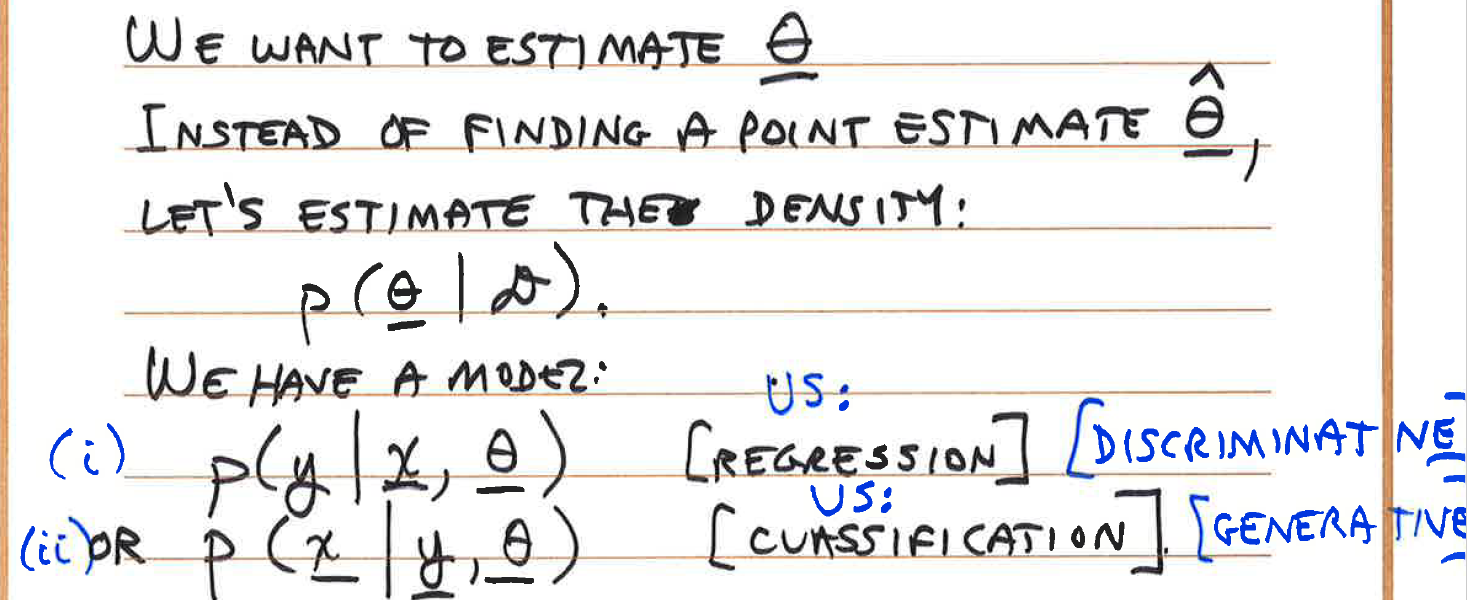 WE WANT TO ESTIMATE θ
INSTEAD OF FINDING A POINT ESTIMATE θ̂,
LET'S ESTIMATE THE DENSITY:
p(θ | 𝒟).
WE HAVE A MODEL:
US:
(i) p(y | x, θ) [REGRESSION] [DISCRIMINATIVE
US:
(ii) OR p(x | y, θ) [CLASSIFICATION]. [GENERATIVE